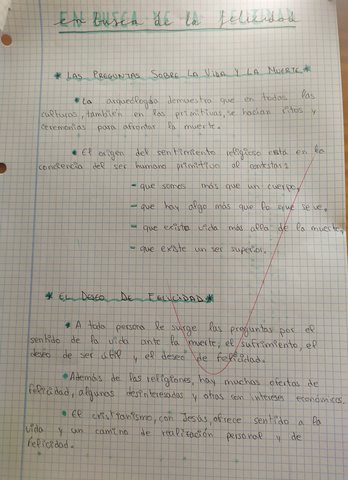 En busca de la felicidad
* LAS PREGUNTAS SOBRE LA VIDA Y LA MUERTE *
* La arqueología demuestra que en todas las
culturas, también en las primitivas, se hacían ritos y
ceremonias para afrontar la muerte.
* El origen del sentimiento religioso está en la
conciencia del ser humano primitivo al contestar:
- que somos más que un cuerpo,
- que hay algo más que lo que se ve,
- que existe vida más allá de la muerte,
- que existe un ser superior.
* EL DESEO DE FELICIDAD *
* A toda persona le surge las preguntas por el
sentido de la vida ante la muerte, el sufrimiento, el
deseo de ser útil y el deseo de felicidad.
* Además de las religiones, hay muchas ofertas de
felicidad, algunas desinteresadas y otras con intereses económicos.
* El cristianismo, con Jesús, ofrece sentido a la
vida y un camino de realización personal y de
felicidad.